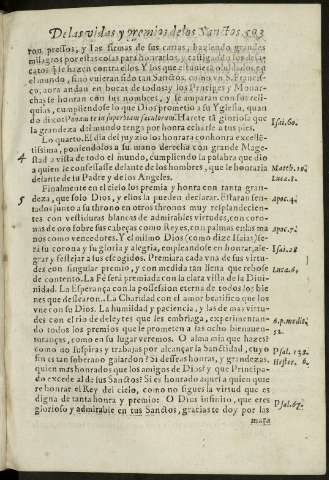 De las vidas y premios de los Sanctos. 593
ron pressos, y las firmas de sus cartas; haziendo grandes
milagros por estas cosas para honrarlos, y castigando los desa-
catos q̃ se hazen contra ellos. Y los que estuuieran oluidados en
el mundo, sino vuieran sido tan Sanctos, como vn S. Francis-
co, aora andan en bocas de todos y los Principes y Monar-
chas se honran con sus nombres, y se amparan con sus reli-
quias, cumpliendose lo que Dios prometio a su Yglesia, quan
do dixo: Ponam te in superbiam sæculorum. Harete tã gloriosa que
Isai. 60.
la grandeza del mundo tenga por honra echarse a tus pies.
4
Lo quarto. El dia del juyzio los honrara con honra excelle-
tissima, poniendolos a su mano derecha con grande Mage-
stad a vista de todo el mundo, cumpliendo la palabra que dio
a quien le confessasse delante de los hombres, que le honraria
Matth. 10.
delante de su Padre y de los Angeles.
Luca. 1.
Finalmente en el cielo los premia y honra con tanta gran-
5
deza, que solo Dios, y ellos la pueden declarar. Estaran sen-
Apoc. 4.
tados junto a su throno en otros thronos muy resplandecien-
tes con vestiduras blancas de admirables virtudes, con coro-
nas de oro sobre sus cabeças como Reyes, con palmas en las ma
Apoc. 7.
nos como vencedores. Y el mismo Dios (como dize Isaias) se-
ra su corona y su gloria y alegria, empleandose en honrar, ale-
Isai. 28
grar y festejar a sus escogidos. Premiara cada vna de sus virtu-
des con singular premio, y con medida tan llena que rebose
Luca. 6.
de contento. La Fè sera premiada con la clara vista de la Diui-
nidad. La Esperança con la possession eterna de todos los bie
nes que dessearon. La Charidad con el amor beatifico que los
vne con su Dios. La humildad y paciencia, y las demas virtu-
des con el rio de deleytes que les embriaga, experimentan-
do todos los premios que le prometen a las ocho bienauen-
6. p. medit.
turanças, como en su lugar veremos. O alma mia que hazes?
52.
como no suspiras y trabajas por alcançar la Sanctidad, cuyo
Psal. 138.
fin es tan soberano galardon? Si desseas honras, y grandezas,
Hester. 6.
quien mas honrados que los amigos de Dios? y que Principa-
do excede al de sus Sanctos? Si es honrado aquel a quien quie
re honrar el Rey del cielo, como no sigues la virtud que es
digna de tanta honra y premio? O Dios infinito, que eres
Psal. 67.
glorioso y admirable en tus Sanctos, gracias te doy por las